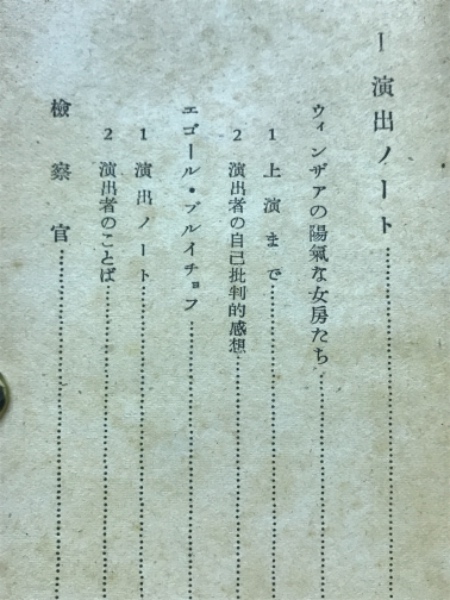 I 演出ノート
ウィンザアの陽氣な女房たち
1 上演まで
2 演出者の自己批判的感想
エゴール・ブルイチョフ
1 演出ノート
2 演出者のことば
檢察官